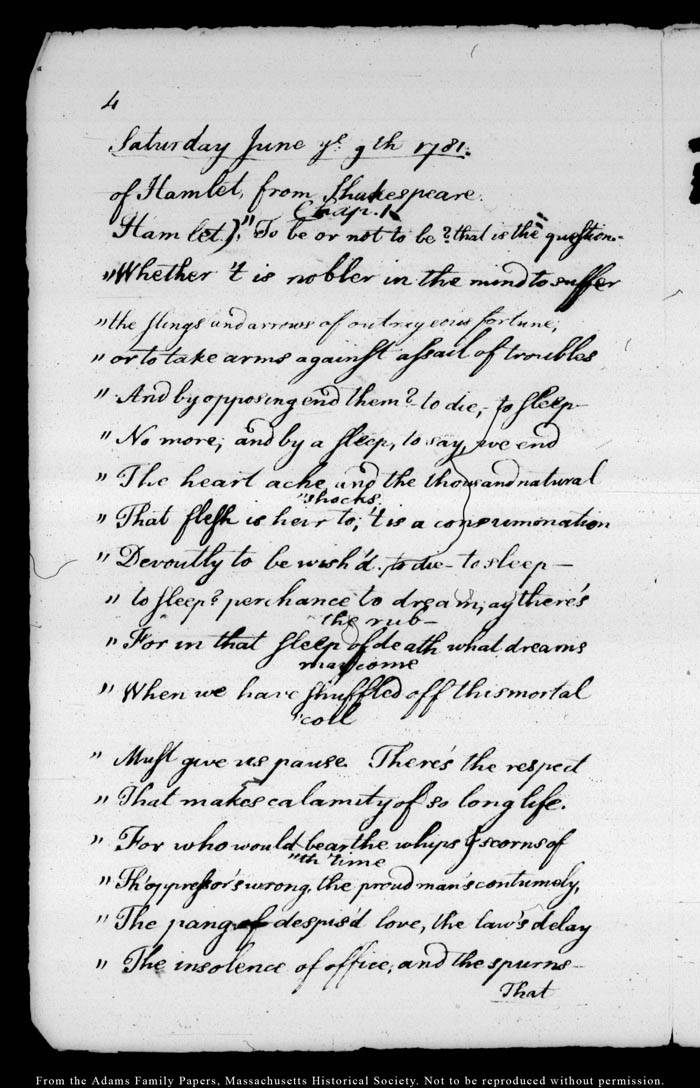 4
Saturday June ye. 9th 1781.
of Hamlet, from Shakespeare.
Chap. 1
Hamlet.) "To be or not to be? that is the question.
"Whether 't is nobler in the mind to suffer
"the slings and arrows of outrageous fortune;
"or to take arms against assail of troubles
"And by opposing end them? to die, to sleep
"No more; and by a sleep, to say, we end
"The heart ache, and the thousand natural
"shocks
"That flesh is heir to; 't is a consummation
"Devoutly to be wish'd. to die - to sleep -
"to sleep? perchance to dream; ay there's
the rub -
"For in that sleep of death what dreams
may come
"When we have shuffled off this mortal
"coil
"Must give us pause. There's the respect
"That makes calamity of so long life.
"For who would bear the whips & scorns of
"th' time
"Th' oppressor's wrong, the proud man's contumely,
"The pang of despis'd love, the law's delay
"The insolence of office, and the spurns
That
From the Adams Family Papers, Massachusetts Historical Society. Not to be reproduced without permission.